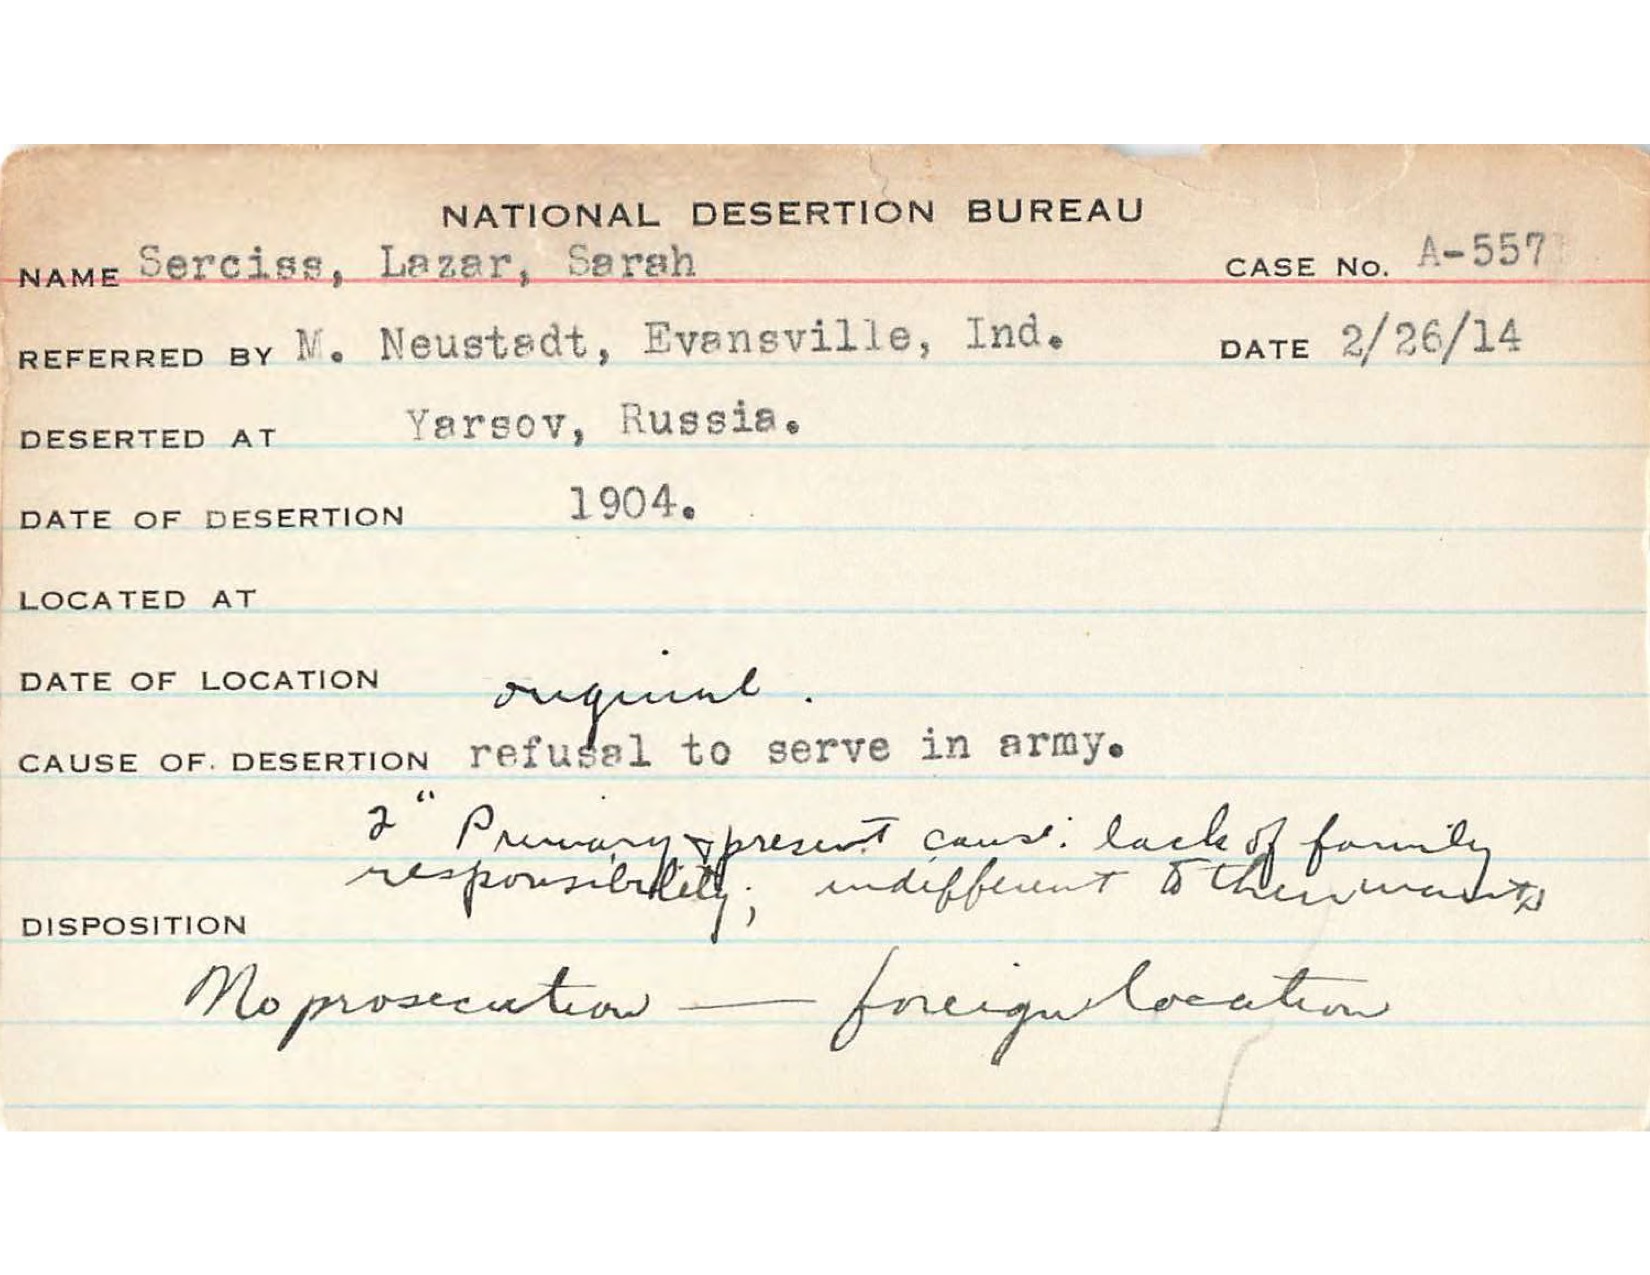 NATIONAL DESERTION BUREAU
NAME Serciss, Lazar, Sarah CASE No. A-557
REFERRED BY M. Neustadt, Evansville, Ind. DATE 2/26/14
DESERTED AT Yarsov, Russia.
DATE OF DESERTION 1904.
LOCATED AT
DATE OF LOCATION
original.
CAUSE OF DESERTION refusal to serve in army.
2" Primary & present cause: lack of family
responsibility; indifferent to their wants
DISPOSITION
No prosecution — foreign location